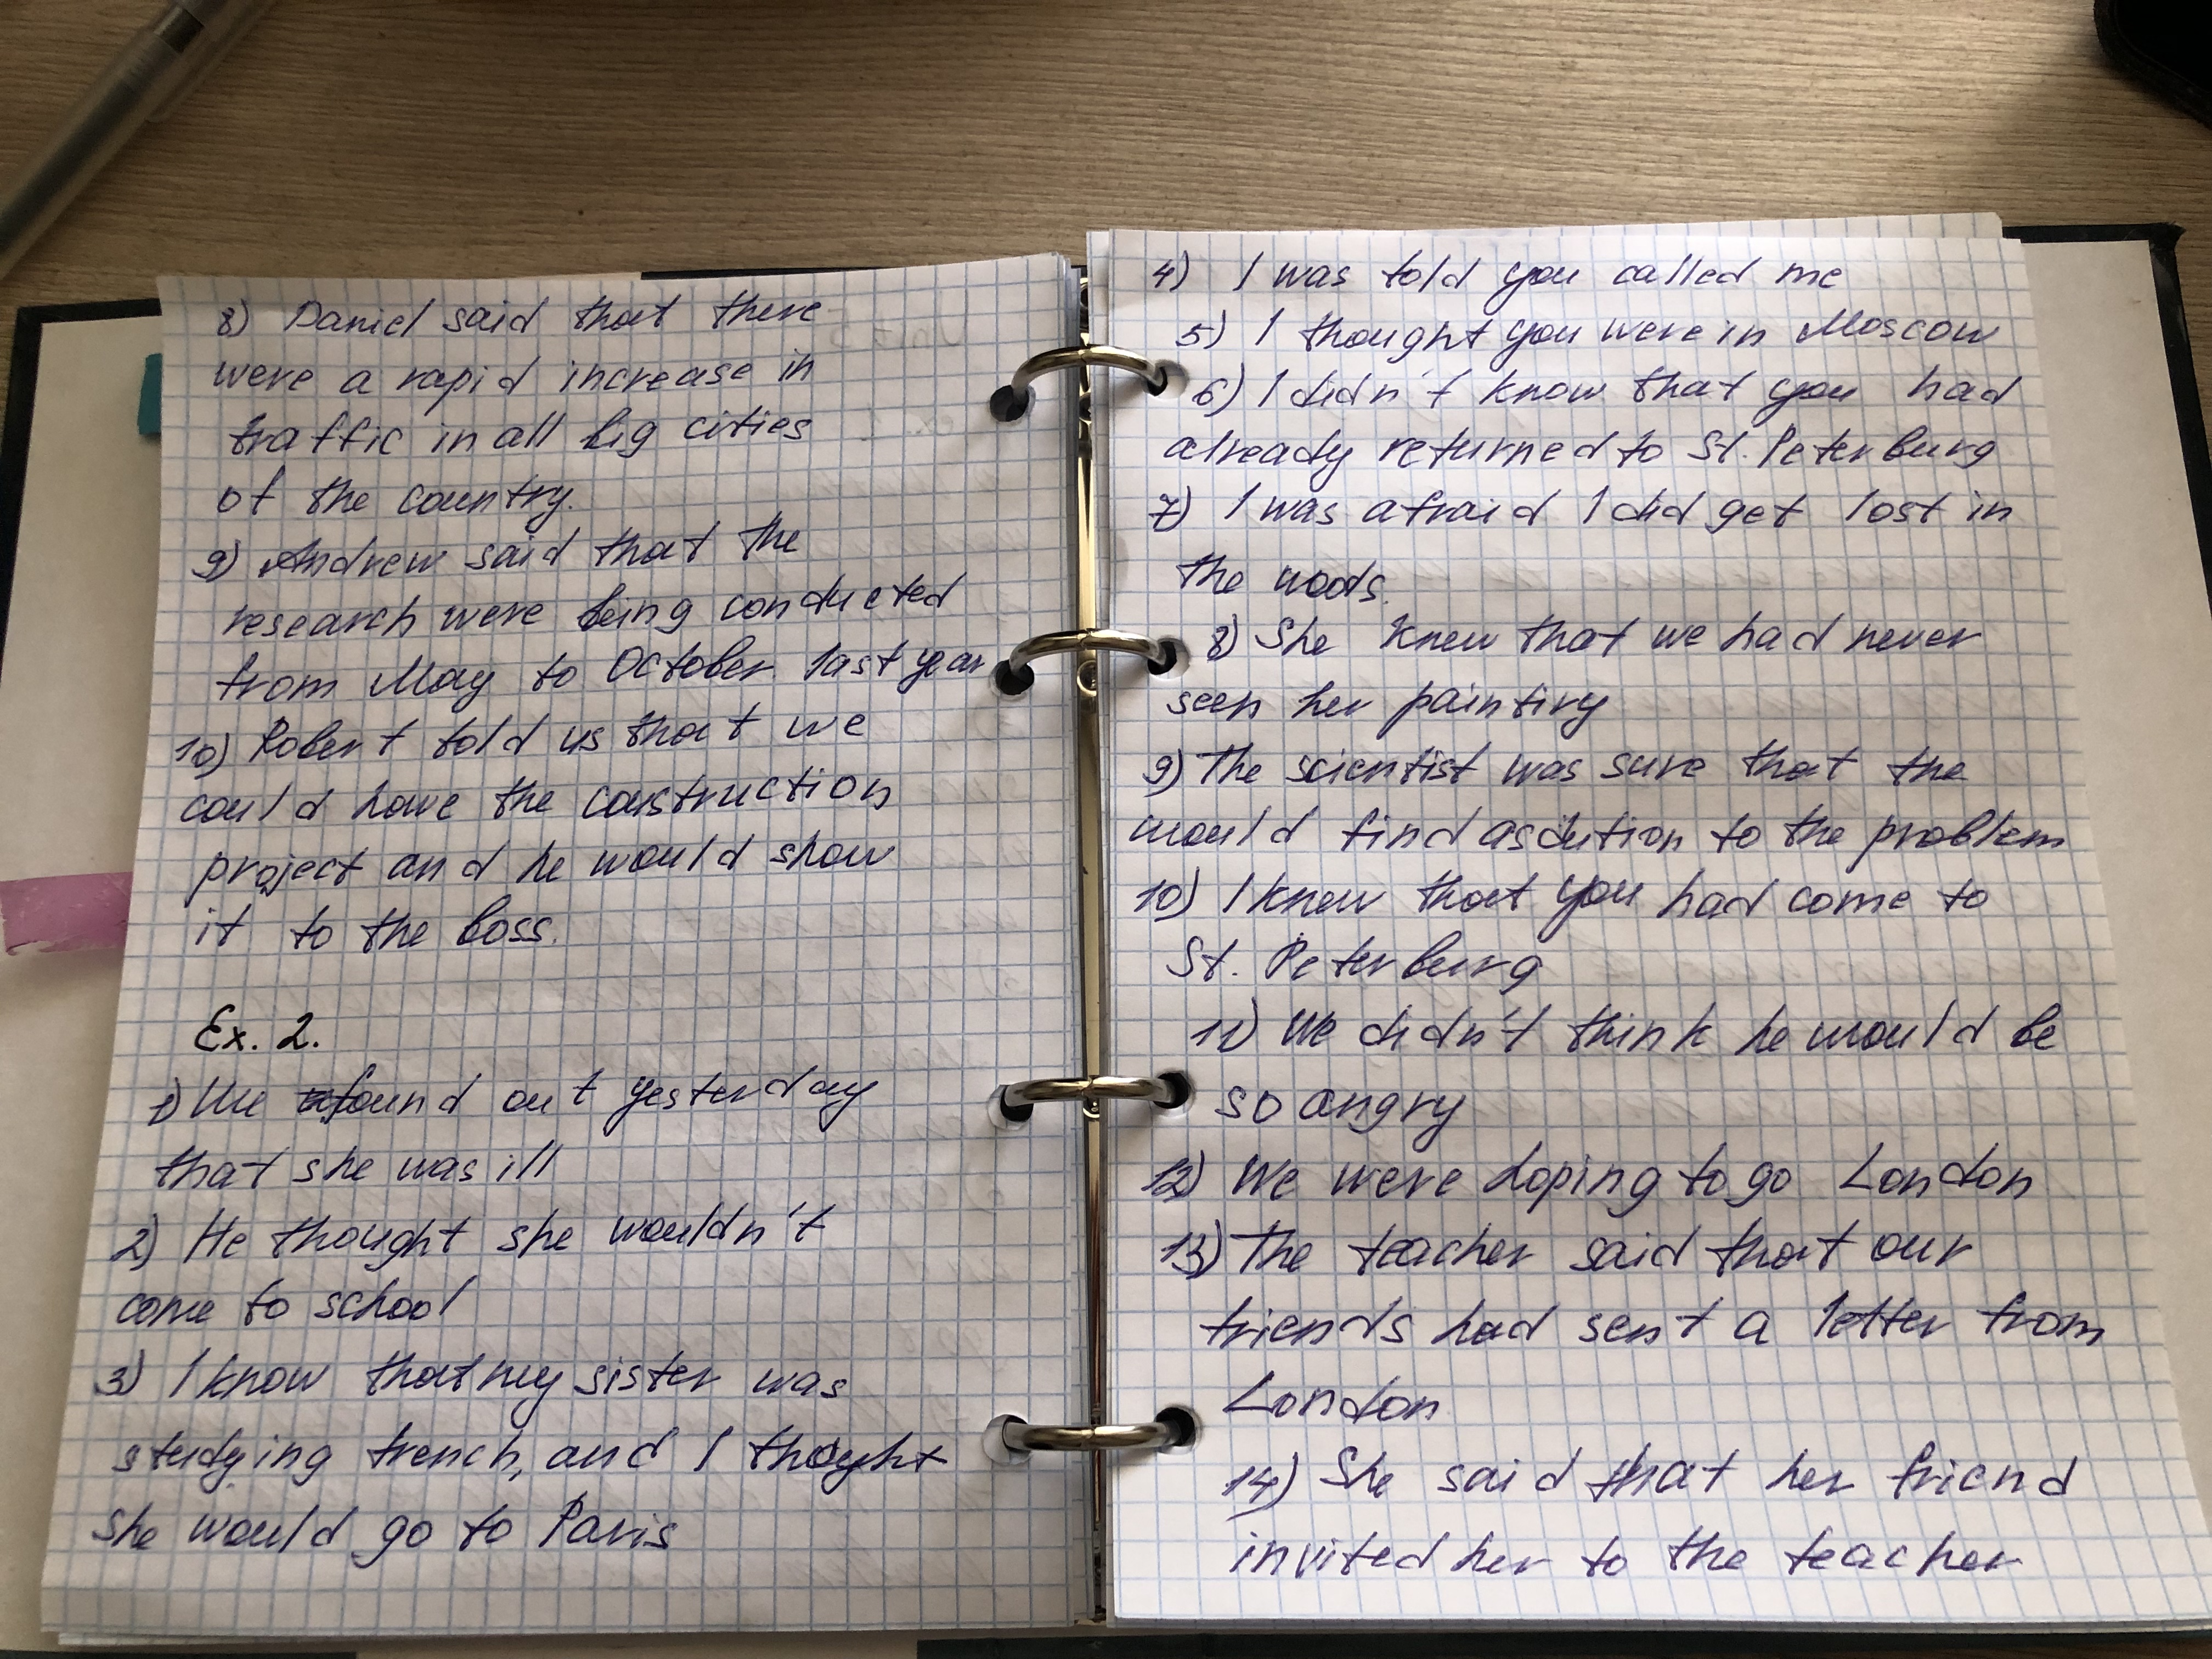 8) Daniel said that there
were a rapid increase in
traffic in all big cities
of the country.
9) Andrew said that the
research were being conducted
from May to October last year
10) Robert told us that we
could have the construction
project and he would show
it to the boss.
Ex. 2.
1) We found out yesterday
that she was ill
2) He thought she wouldn't
come to school
3) I know that my sister was
studying french, and I thought
she would go to Paris
4) I was told you called me
5) I thought you were in Moscow
6) I didn't know that you had
already returned to St. Peterburg
7) I was afraid I did get lost in
the woods.
8) She knew that we had never
seen her painting
9) The scientist was sure that the
would find a solution to the problem
10) I knew that you had come to
St. Peterburg
11) We didn't think he would be
so angry
12) We were hoping to go London
13) The teacher said that our
friends had sent a letter from
London
14) She said that her friend
invited her to the teacher